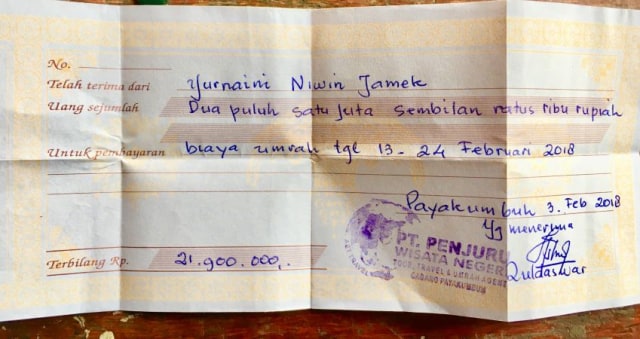 No.
Telah terima dari Yurnaini Niwin Jamek
Uang sejumlah Dua puluh satu juta sembilan ratus ribu rupiah
Untuk pembayaran biaya umrah tgl 13 - 24 Februari 2018
Payakumbuh 3. Feb 2018
Yg menerima
PT. PENJURU
WISATA NEGERI
TOUR, TRAVEL & UMRAH AGENT
CABANG PAYAKUMBUH
Terbilang Rp. 21.900.000,.